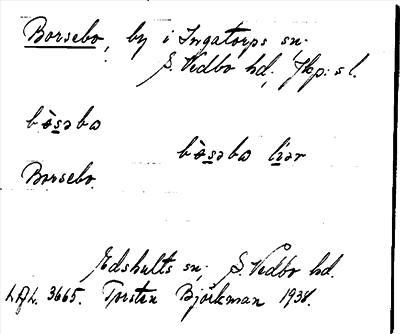 Borsebo, by i Ingatorps sn.
S. Vedbo hd, Jkp:s l.
bòsəbω
bòsəbω liər
Borsebo.
Edshults sn; S. Vedbo hd.
LAL. 3665. Torsten Björkman 1938.